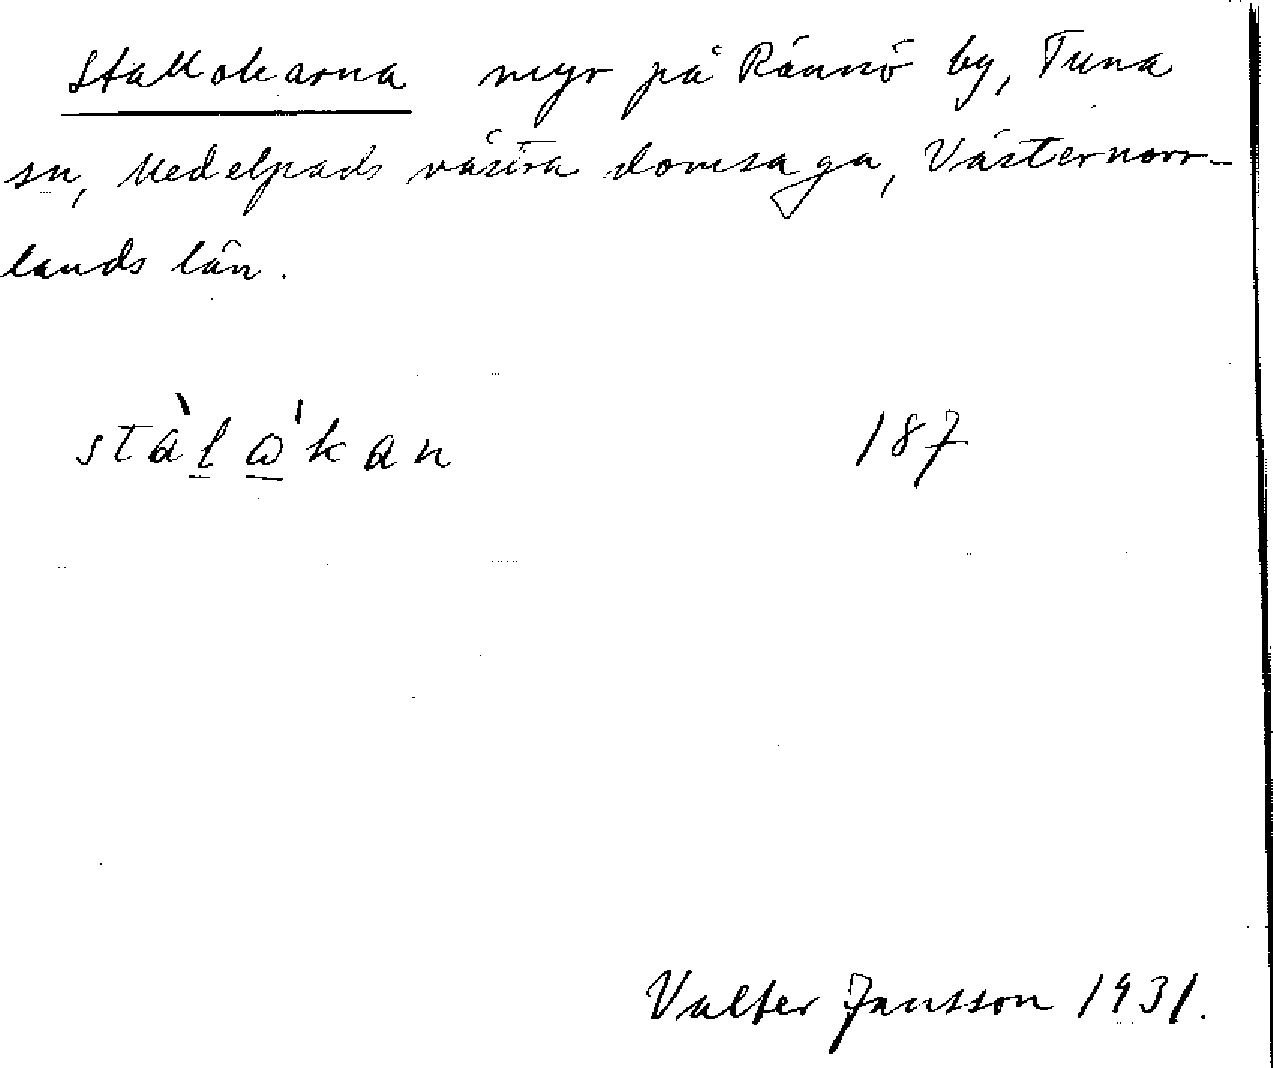 Stallokarna myr på Rännö by, Tuna
sn, Medelpads västra domsaga, Västernorr-
lands län.
stàlɷ́kan 187
Valter Jansson 1931.